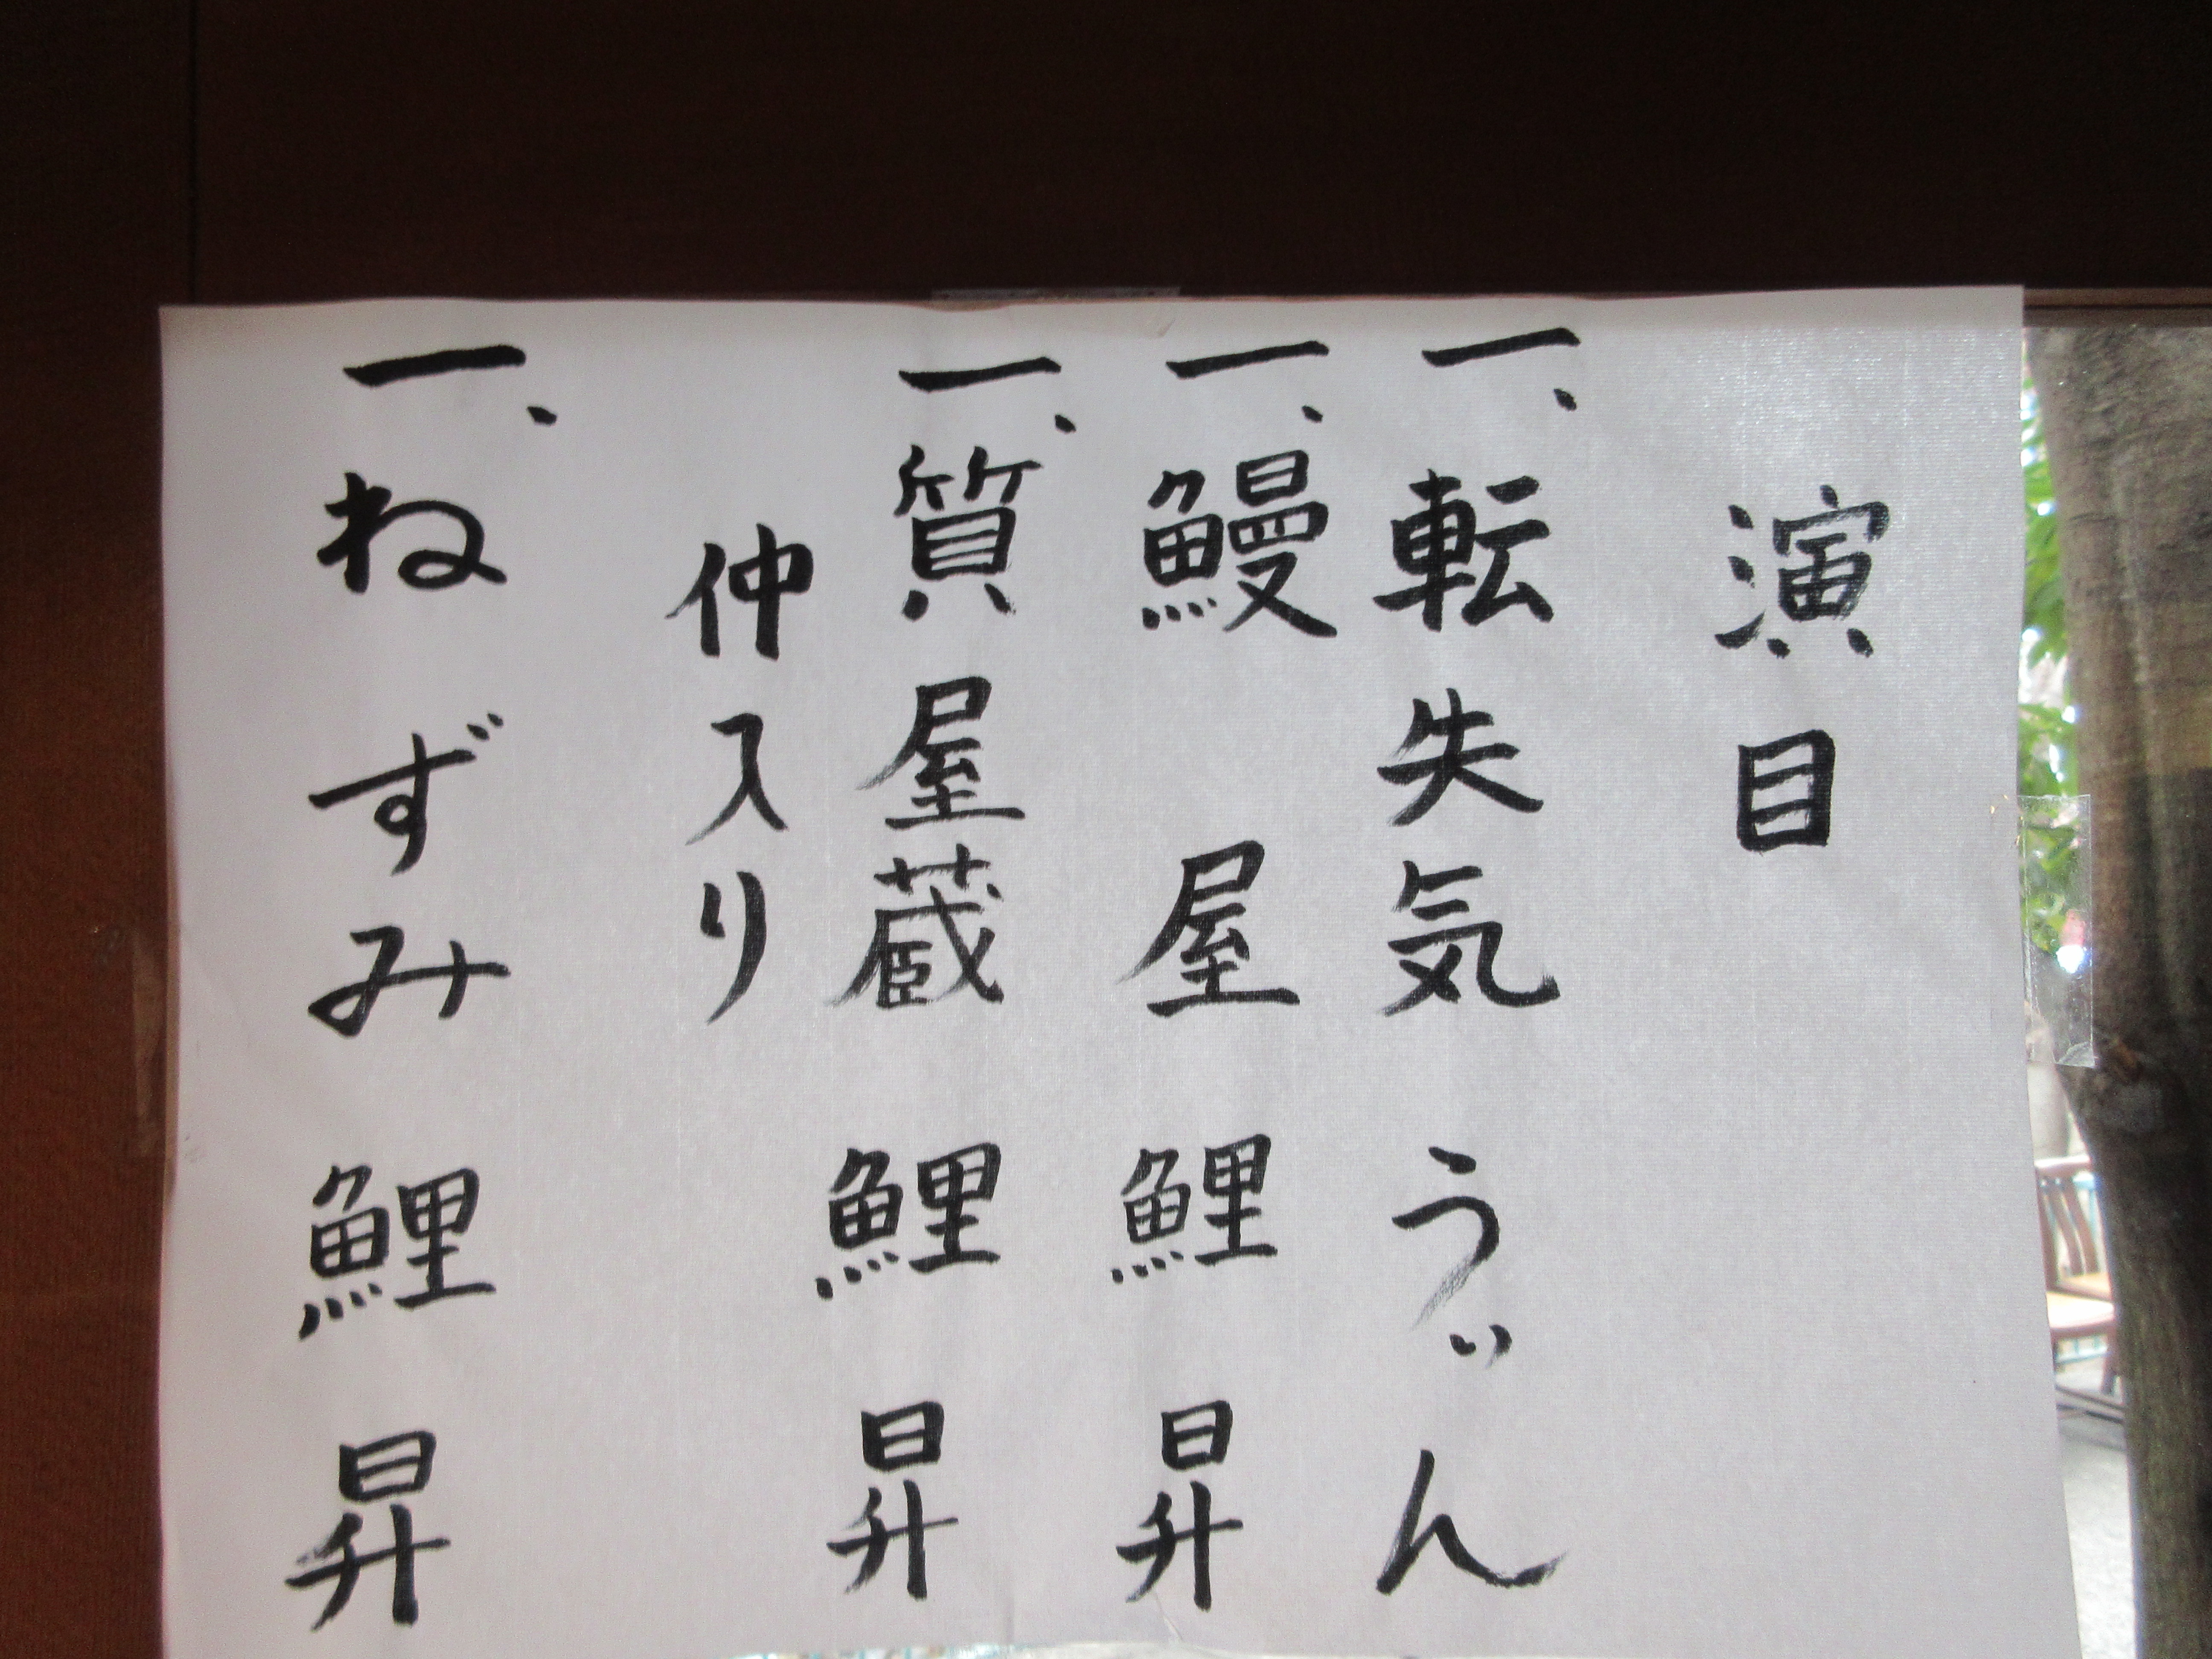 演目
一、転失気 うゞん
一、鰻屋 鯉昇
一、質屋蔵 鯉昇
仲入り
一、ねずみ 鯉昇